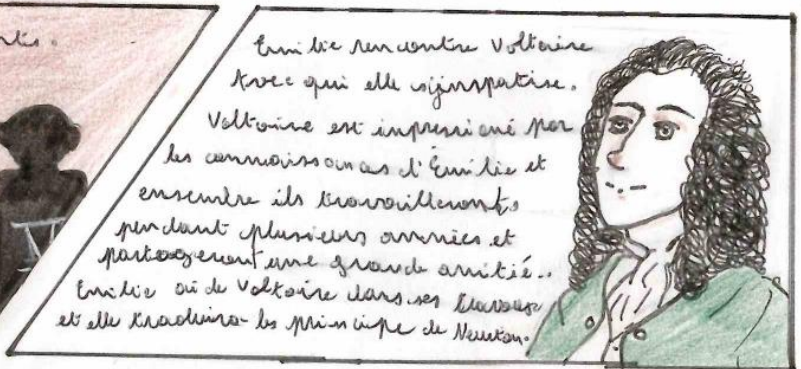 Emilie rencontre Voltaire
Avec qui elle sijmpatise.
Voltaire est impressioné par
les connaissances d'Émilie et
ensembre ils travailleronts
pendant plusieurs années et
partageront une grande amitié..
Emilie aide Voltaire dans ses travaux
et elle traduira les principe de Newton.